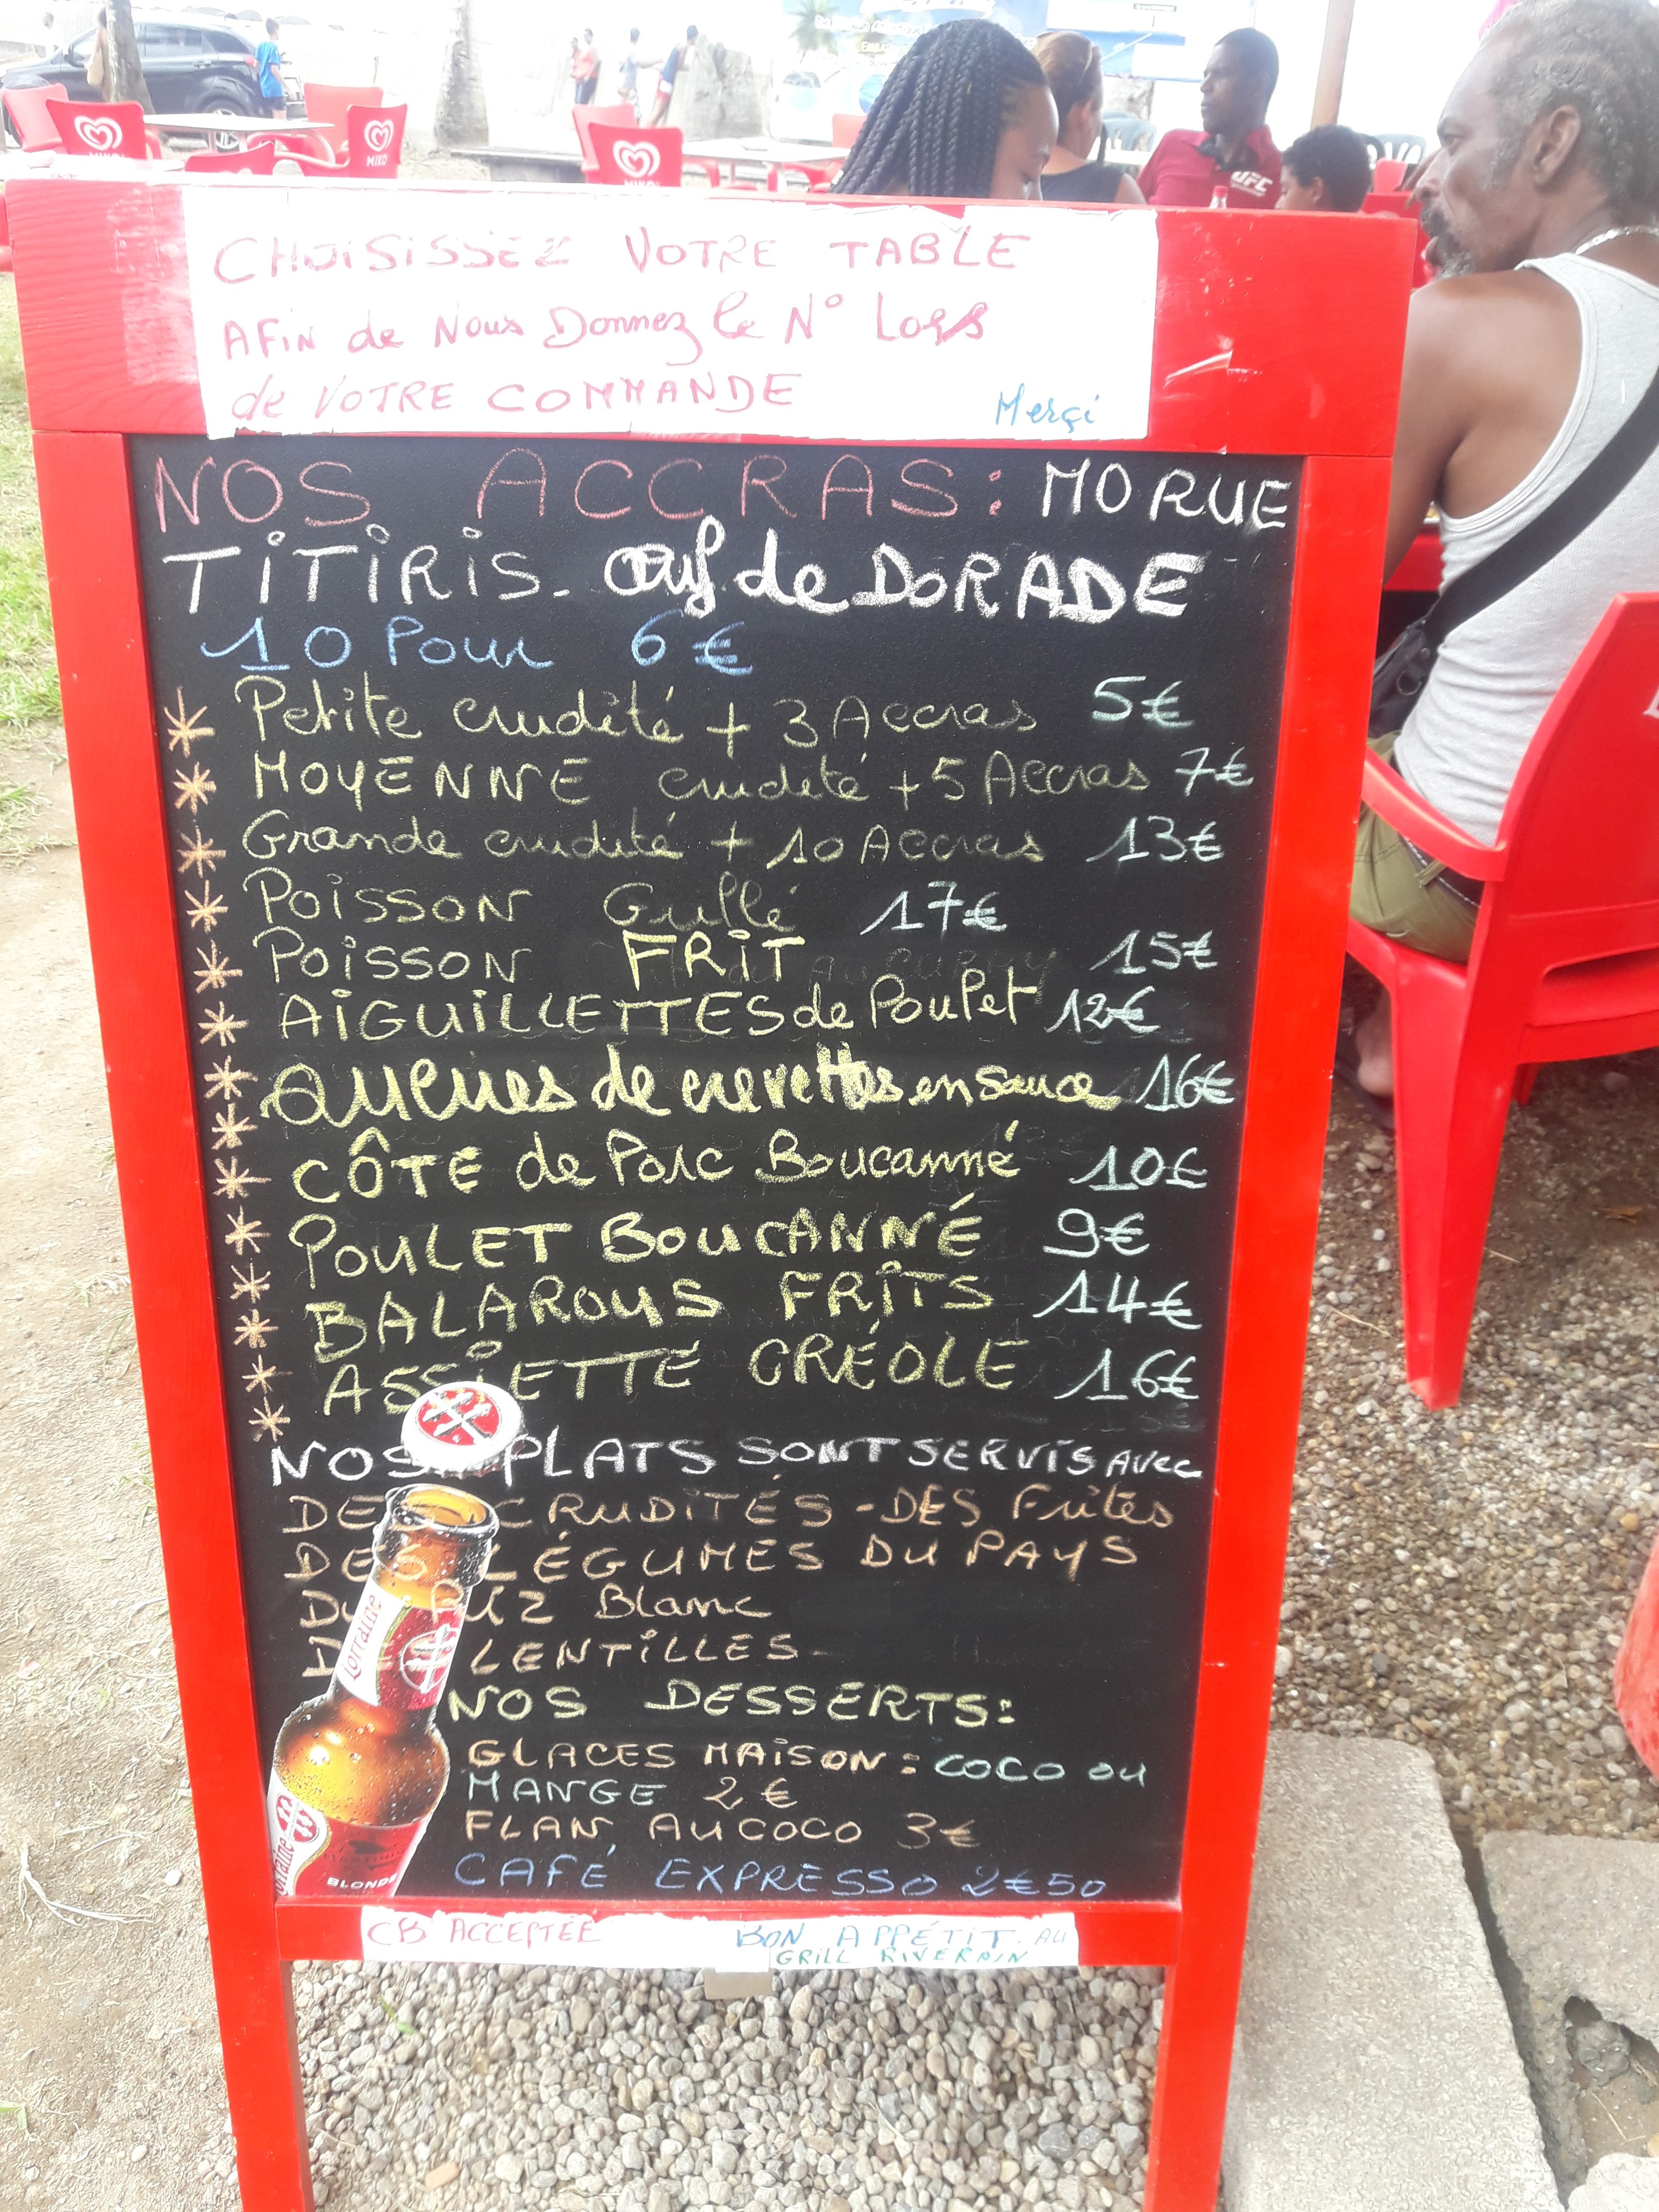 CHOISISSEZ VOTRE TABLE
AFIN de Nous Donnez le N° Lors
de VOTRE COMMANDE Merçi
NOS ACCRAS: MORUE
TITIRIS. Œuf de DORADE
10 Pour 6€
Petite crudité + 3 Accras 5€
MOYENNE crudité + 5 Accras 7€
Grande crudité + 10 Accras 13€
POISSON Grillé 17€
POISSON FRIT 15€
AIGUILLETTES de Poulet 12€
QUEUES de crevettes en sauce 16€
CÔTE de Porc Boucanné 10€
POULET BOUCANNÉ 9€
BALAROUS FRITS 14€
ASSIETTE CRÉOLE 16€
NOS PLATS SONT SERVIS AVEC
DES CRUDITÉS - DES Frites
DES LÉGUMES DU PAYS
DU RIZ Blanc
LENTILLES
NOS DESSERTS:
GLACES MAISON: COCO OU
MANGE 2€
FLAN AU COCO 3€
CAFÉ EXPRESSO 2€50
Lorraine
BLONDE
CB ACCEPTÉE
BON APPÉTIT AU
GRILL RIVERAIN
MIKO
MIKO
MIKO
UFC